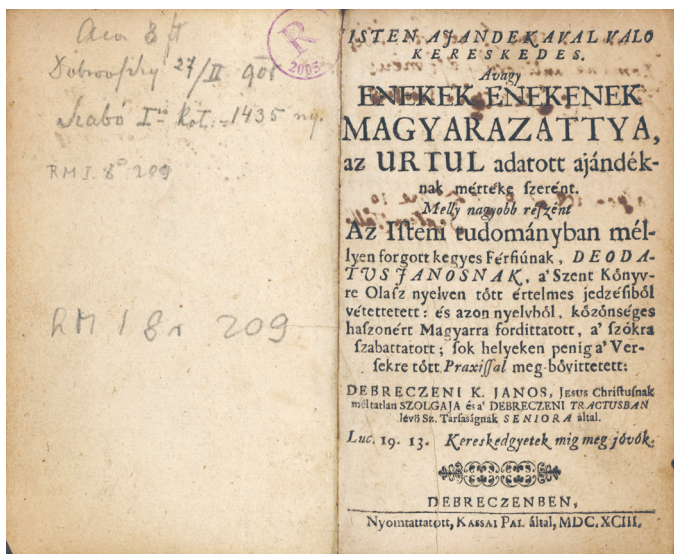 Aca 8 ft
Dobrovszky 27/II 905
Szabó I. Köt. 1435 ny.
RMI. 8° 209
RM I 8r 209
R
2005
ISTEN AJANDEKAVAL VALO
KERESKEDES.
Avagy
ENEKEK ENEKENEK
MAGYARAZATTYA,
az URTUL adatott ajándék-
nak mértéke ſzerént.
Melly nagyobb réſzént
Az Iſteni tudományban mél-
lyen forgott kegyes Férfiúnak, DEODA-
TUS JANOSNAK, a' Szent Kőnyv-
re Olaſz nyelven tőtt értelmes jedzéſiből
vétettetett: és azon nyelvből, kőzőnséges
haſzonért Magyarra fordíttatott, a' ſzókra
ſzabattatott; ſok helyeken penig a' Ver-
ſekre tőtt Praxiſſal meg-bővittetett:
DEBRECZENI K. JANOS, Jesus Chriſtuſnak
méltatlan SZOLGAJA és a' DEBRECZENI TRACTUSBAN
lévő Sz. Társaságnak SENIORA által.
Luc. 19. 13. Kereskedgyetek mig meg jövők.
DEBRECZENBEN,
Nyomtattatott, KASSAI PAL által, MDC.XCIII.